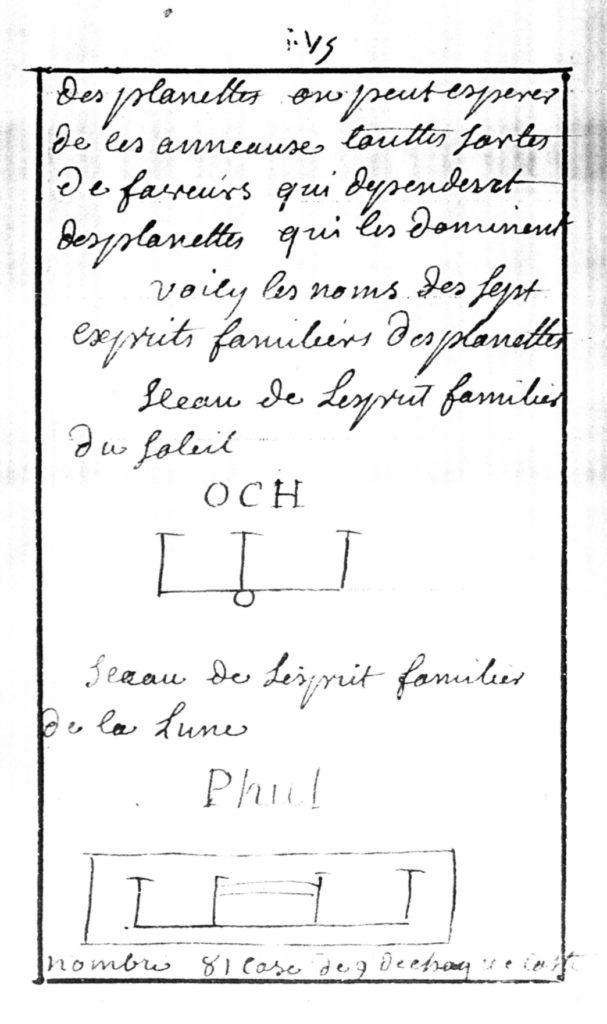 des planettes on peut esperer
de ces anneause touttes sortes
de faveurs qui dependent
des planettes qui les dominent
voicy les noms des sept
esprits familiers des planettes
sceau de Lesprit familier
du soleil
OCH
sceau de Lesprit familier
de la Lune
Phul
nombre 81 case de 9 de chaque coste